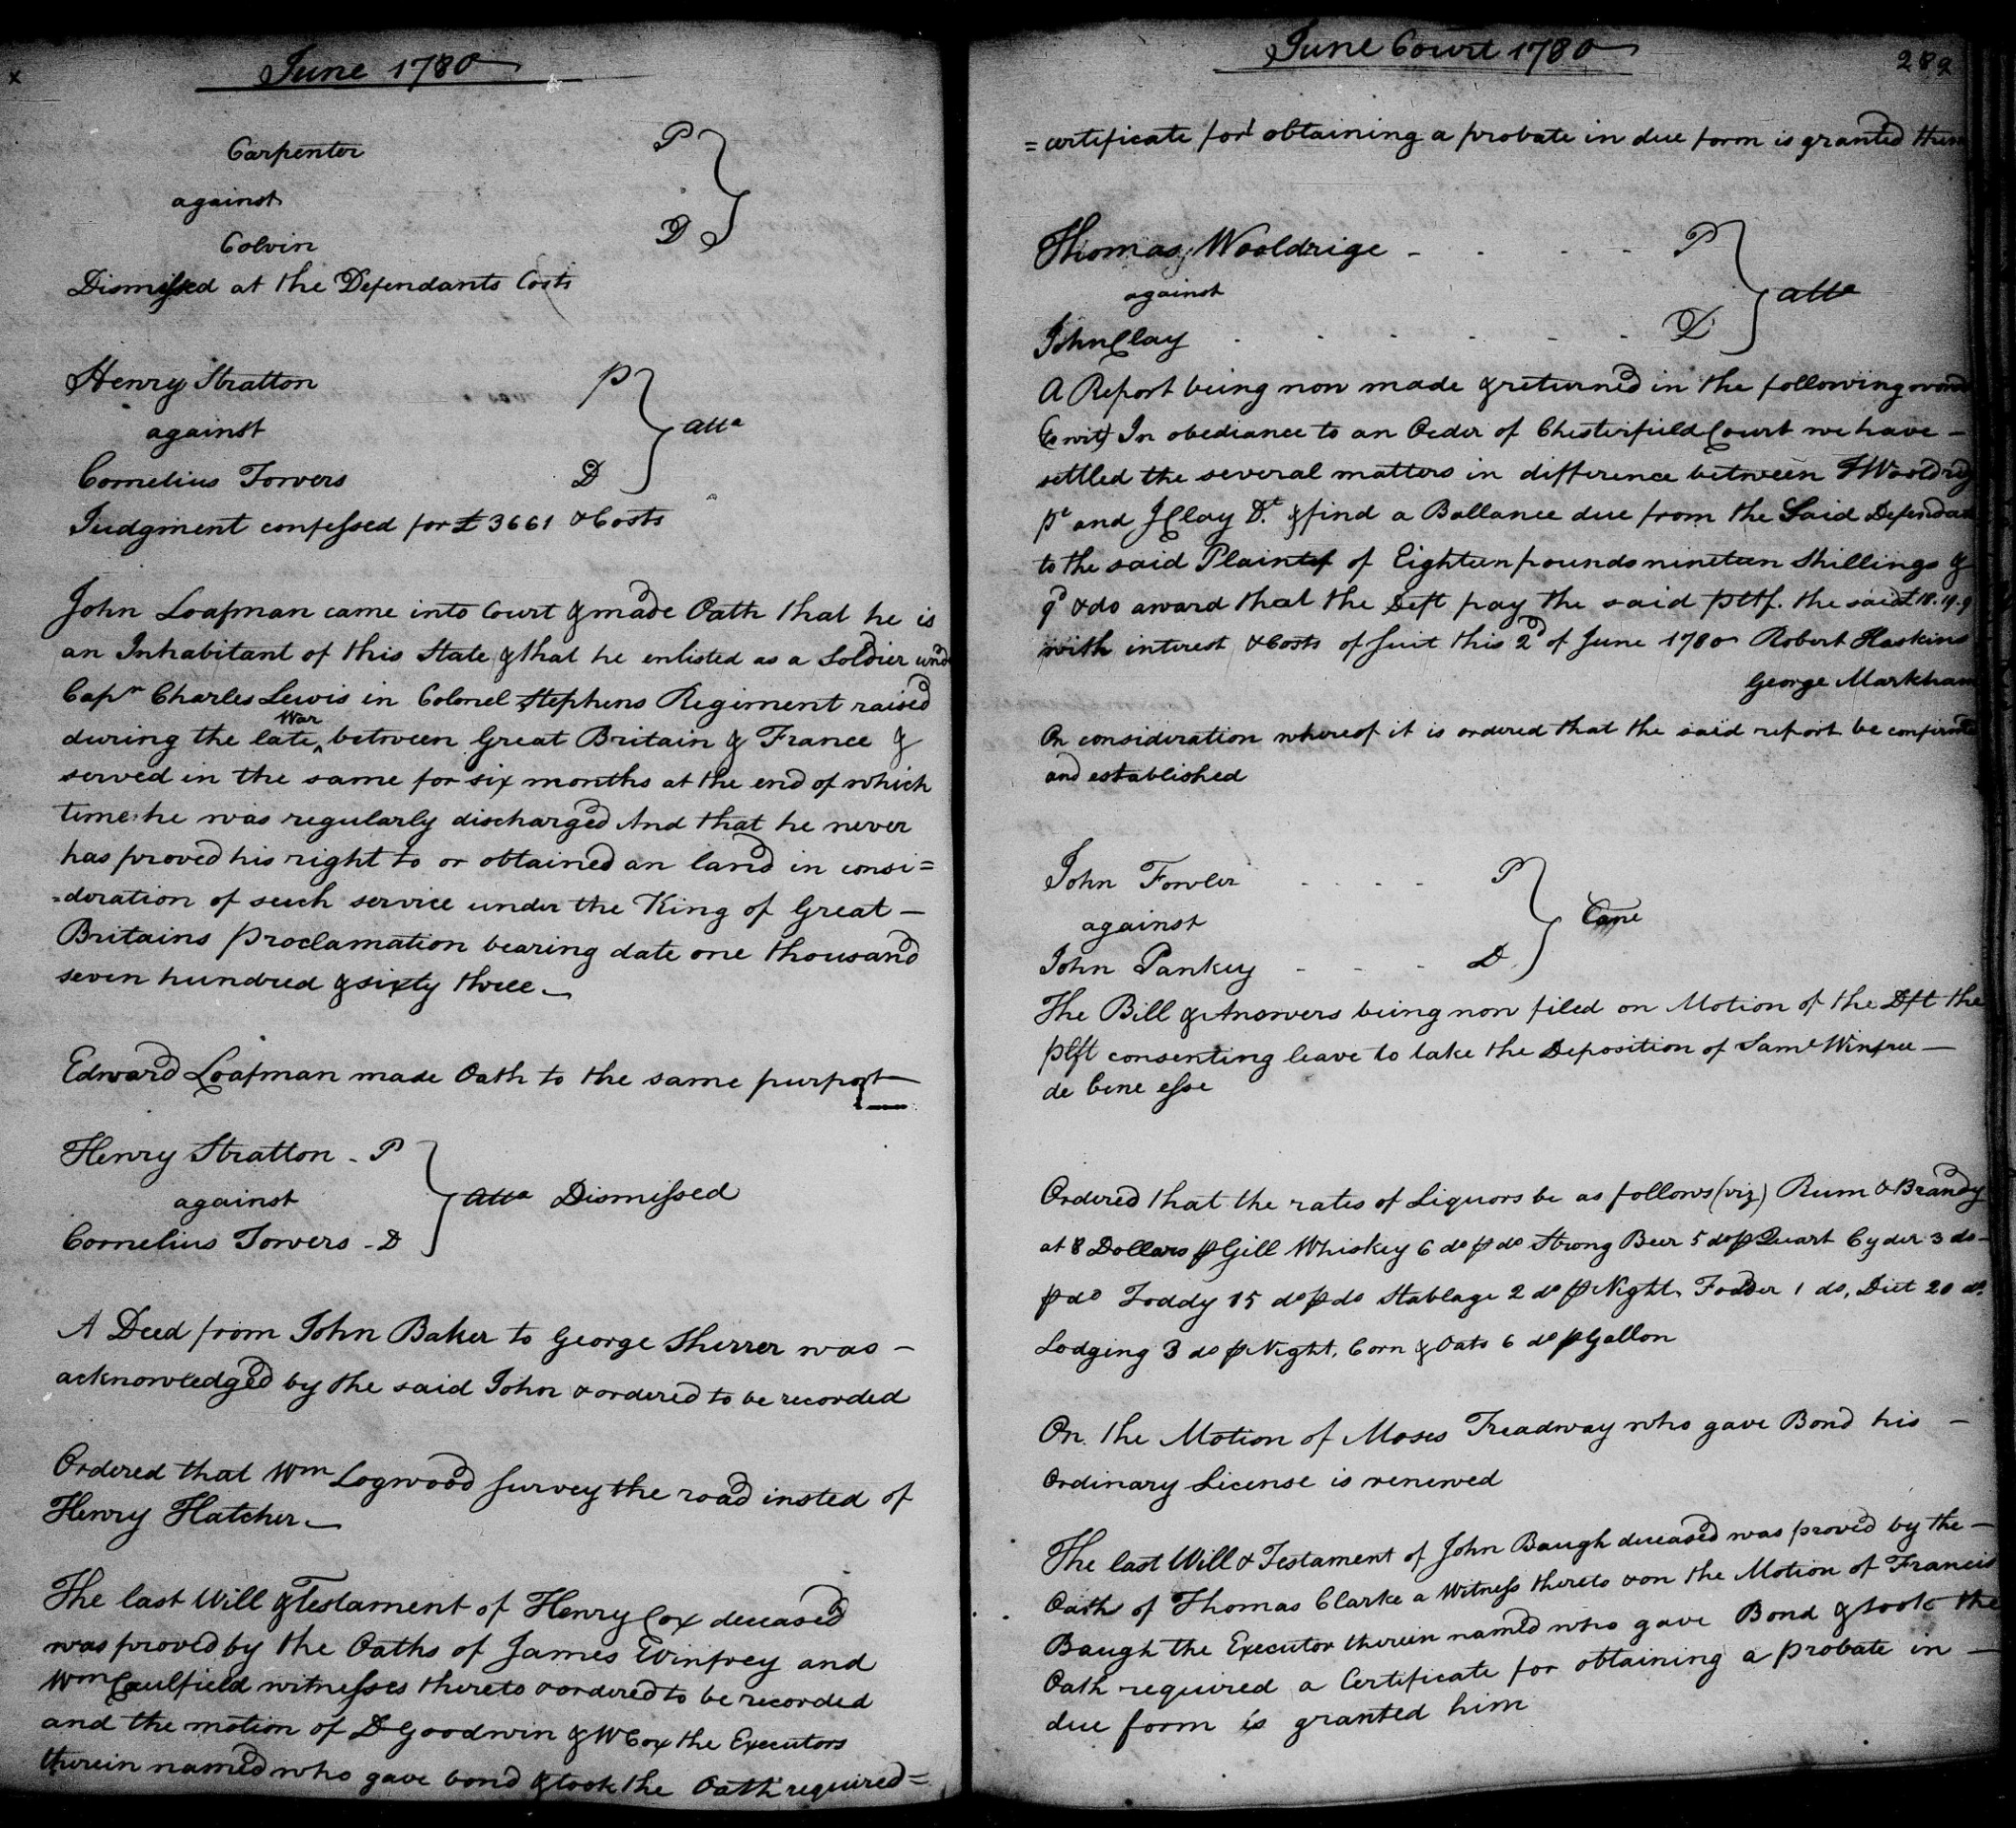 June 1780
Carpenter P
against
Colvin D
Dismissed at the Defendants Costs
Henry Stratton P
against Atta
Cornelius Towers D
Judgment confessed for £3661 & Costs
John Loafman came into Court & made Oath that he is
an Inhabitant of this State & that he enlisted as a Soldier und
Capn Charles Lewis in Colonel Stephens Regiment raised
War
during the late ^ between Great Britain & France &
served in the same for six months at the end of which
time he was regularly discharged And that he never
has proved his right to or obtained an land in consi=
=deration of such service under the King of Great –
Britains Proclamation bearing date one thousand
seven hundred & sixty three –
Edward Loafman made Oath to the same purport
Henry Stratton - P
against Atta Dismissed
Cornelius Towers - D
A Deed from John Baker to George Sherrer was –
acknowledged by the said John & ordered to be recorded
Ordered that Wm Logwood survey the road insted of
Henry Hatcher –
The last Will & Testament of Henry Cox deceased
was proved by the Oaths of James Winfrey and
Wm Caulfield witnesses thereto & ordered to be recorded
and the motion of D Goodwin & W Cox the Executors
therein named who gave bond & took the Oath required =
June Court 1780
289
= certificate for obtaining a probate in due form is granted them
Thomas Wooldrige - - - - P
against Atta
John Clay - - - - - - D
A Report being now made & returned in the following words
(to wit) In obediance to an Order of Chesterfield Court we have –
settled the several matters in difference between T Wooldrig
pt and J Clay Dt & find a Ballance due from the Said Defendan
to the said Plaintf of Eighteen pounds nineteen Shillings &
9d & do award that the Deft pay the said pltf. the said £18.19.9
with interest & Costs of suit this 2d of June 1780 Robert Haskins
George Markham
On consideration whereof it is ordered that the said report be confirmd
and established
John Fowler - - - - P
against Cane
John Pankey - - - D
The Bill & Answers being now filed on Motion of the Dft the
plft consenting leave to take the Deposition of Saml Winfree –
de bene esse
Ordered that the rates of Liquors be as follows (viz) Rum & Brandy
at 8 Dollars ⅌ Gill Whiskey 6 do ⅌ do Strong Beer 5 do ⅌ Quart Cyder 3 do –
⅌ do Toddy 15 do ⅌ do Stablage 2 do ⅌ Night, Fodder 1 do, Diet 20 do.
Lodging 3 do ⅌ Night, Corn & Oats 6 do ⅌ Gallon
On the Motion of Moses Treadway who gave Bond his –
Ordinary License is renewed
The last Will & Testament of John Baugh deceased was proved by the –
Oath of Thomas Clarke a Witness thereto & on the Motion of Francis
Baugh the Executor therein named who gave Bond & took the
Oath required a Certificate for obtaining a probate in –
due form is granted him